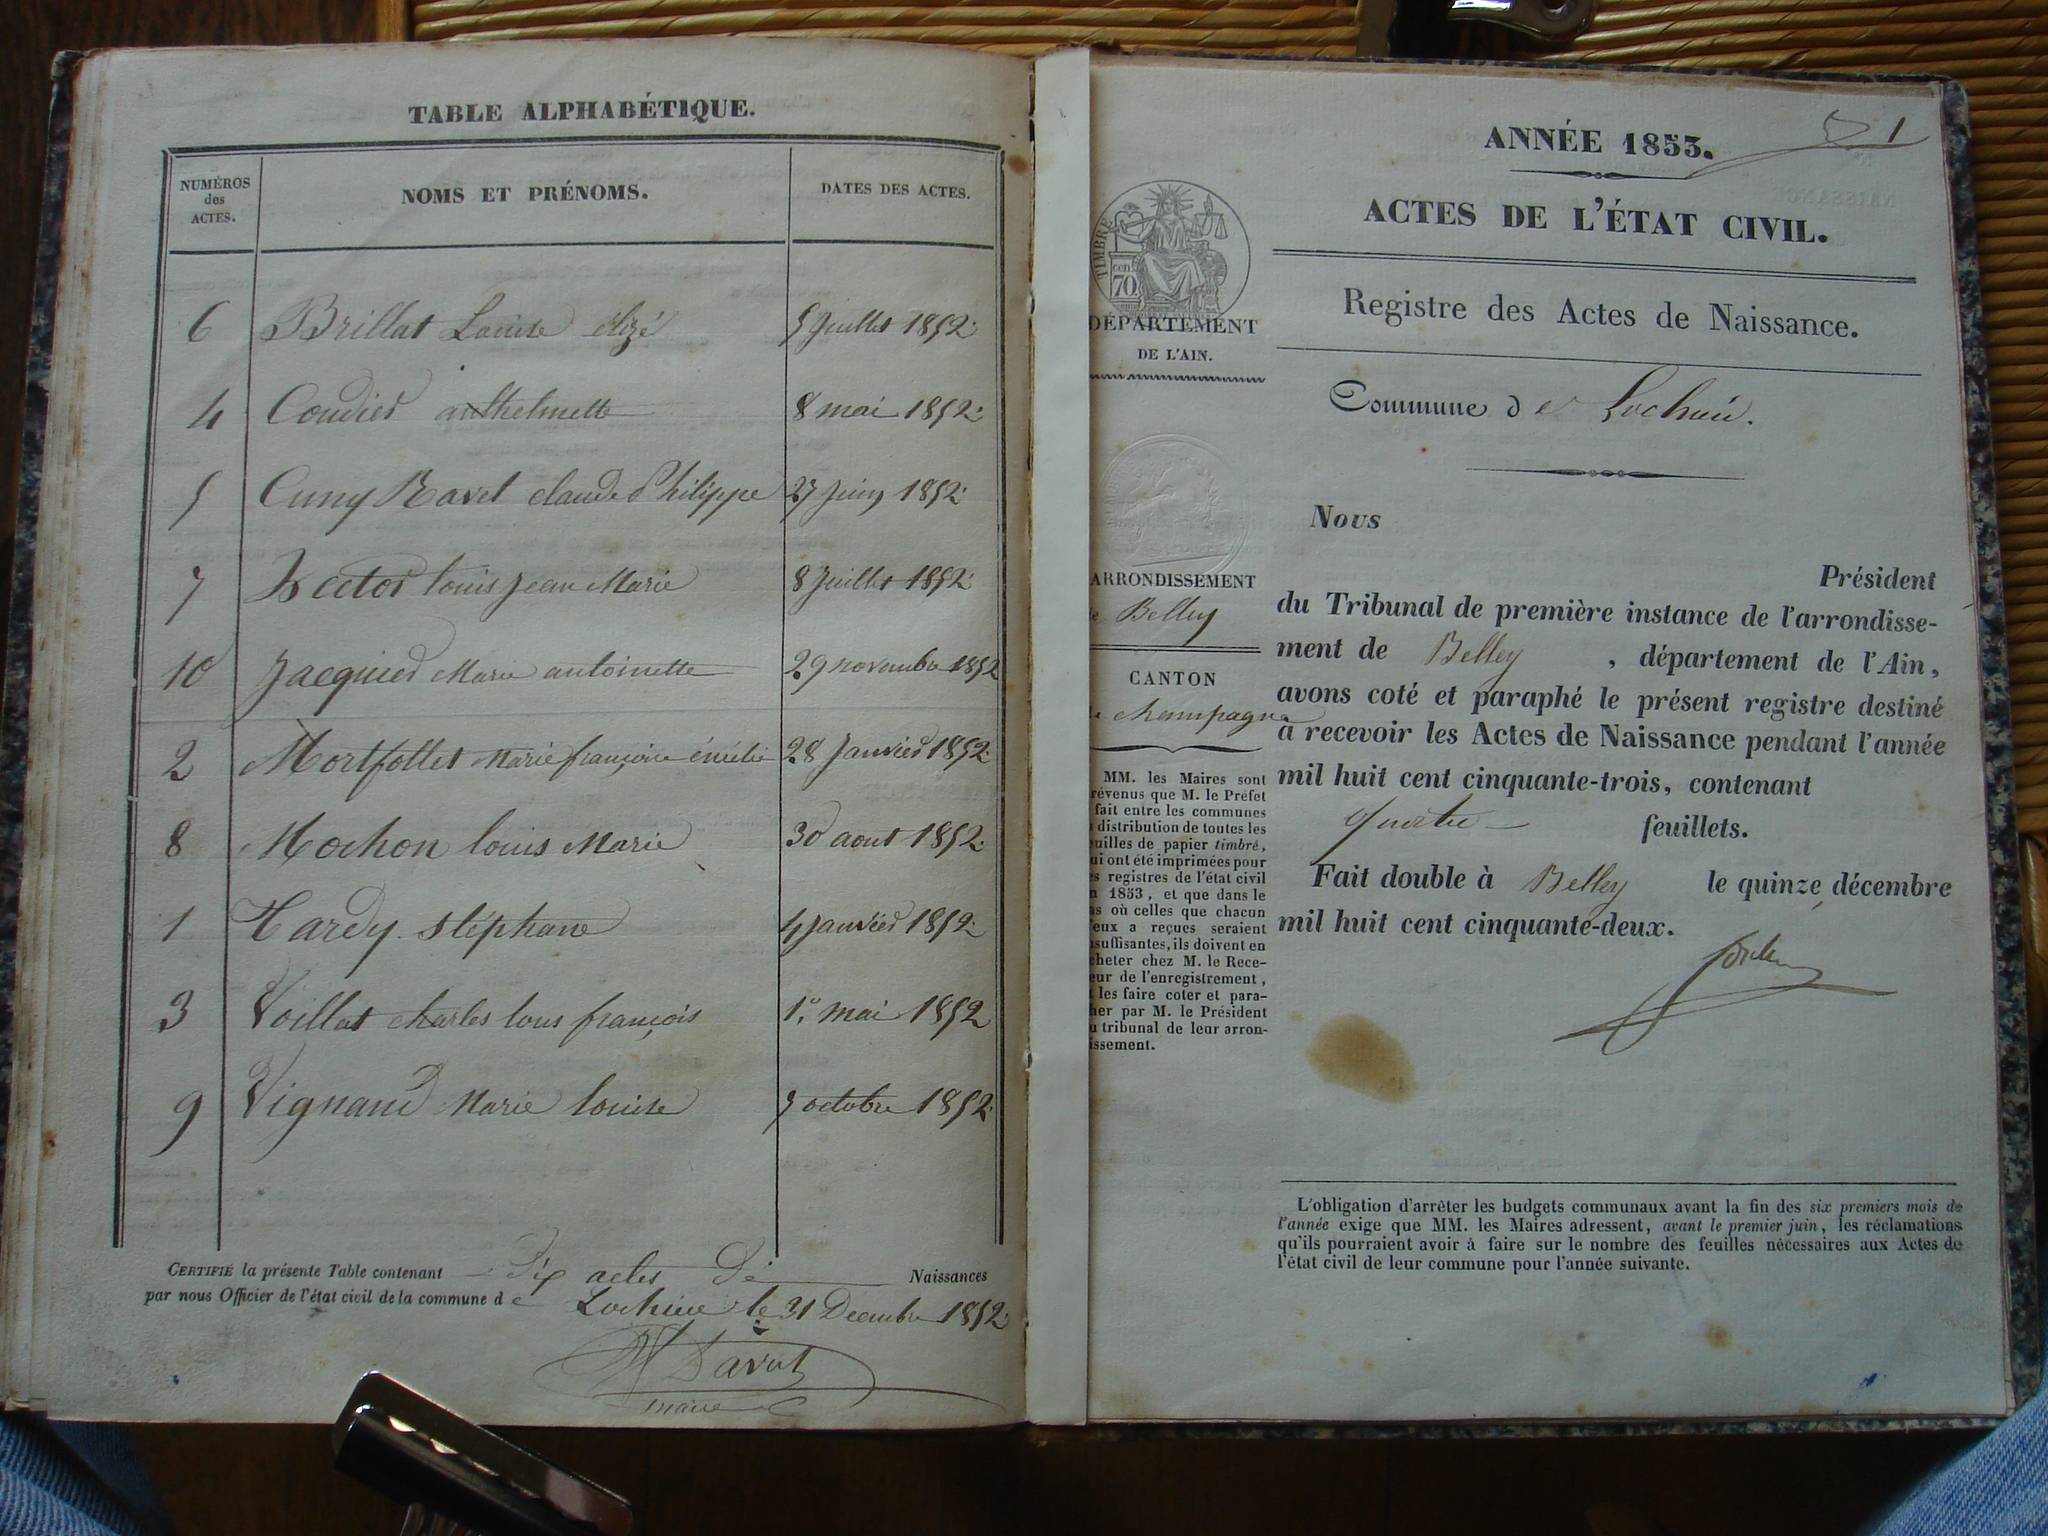 TABLE ALPHABÉTIQUE.
NUMÉROS des ACTES. NOMS ET PRÉNOMS. DATES DES ACTES.
6 Brillat Louise elizé 5 Juillet 1852
4 Coudier anthelmette 8 mai 1852
5 Cuny Ravet claude Philippe 27 Juin 1852
7 Hector louis Jean Marie 8 Juillet 1852
10 Jacquier Marie antoinette 29 novembre 1852
2 Mortfollet Marie françoise émélie 28 Janvier 1852
8 Mochon louis Marie 30 aout 1852
1 Tardy stéphane 4 Janvier 1852
3 Voillat charles louis françois 1er mai 1852
9 Vignand Marie louise 7 octobre 1852
CERTIFIÉ la présente Table contenant dix actes de Naissances
par nous Officier de l'état civil de la commune de Lochieu le 31 Decembre 1852
Ravet
maire
1
ANNÉE 1853.
ACTES DE L'ÉTAT CIVIL.
Registre des Actes de Naissance.
Commune de Lochieu.
TIMBRE
cen
70
DÉPARTEMENT
DE L'AIN.
ARRONDISSEMENT
Belley
CANTON
champagne
MM. les Maires sont
révenus que M. le Préfet
fait entre les communes
distribution de toutes les
uilles de papier timbré,
ui ont été imprimées pour
s registres de l'état civil
n 1853, et que dans le
s où celles que chacun
'eux a reçues seraient
suffisantes, ils doivent en
cheter chez M. le Rece-
eur de l'enregistrement,
les faire coter et para-
her par M. le Président
u tribunal de leur arron-
issement.
Nous
Président
du Tribunal de première instance de l'arrondisse-
ment de Belley, département de l'Ain,
avons coté et paraphé le présent registre destiné
à recevoir les Actes de Naissance pendant l'année
mil huit cent cinquante-trois, contenant
quatre feuillets.
Fait double à Belley le quinze décembre
mil huit cent cinquante-deux.
L'obligation d'arrêter les budgets communaux avant la fin des six premiers mois de
l'année exige que MM. les Maires adressent, avant le premier juin, les réclamations
qu'ils pourraient avoir à faire sur le nombre des feuilles nécessaires aux Actes de
l'état civil de leur commune pour l'année suivante.